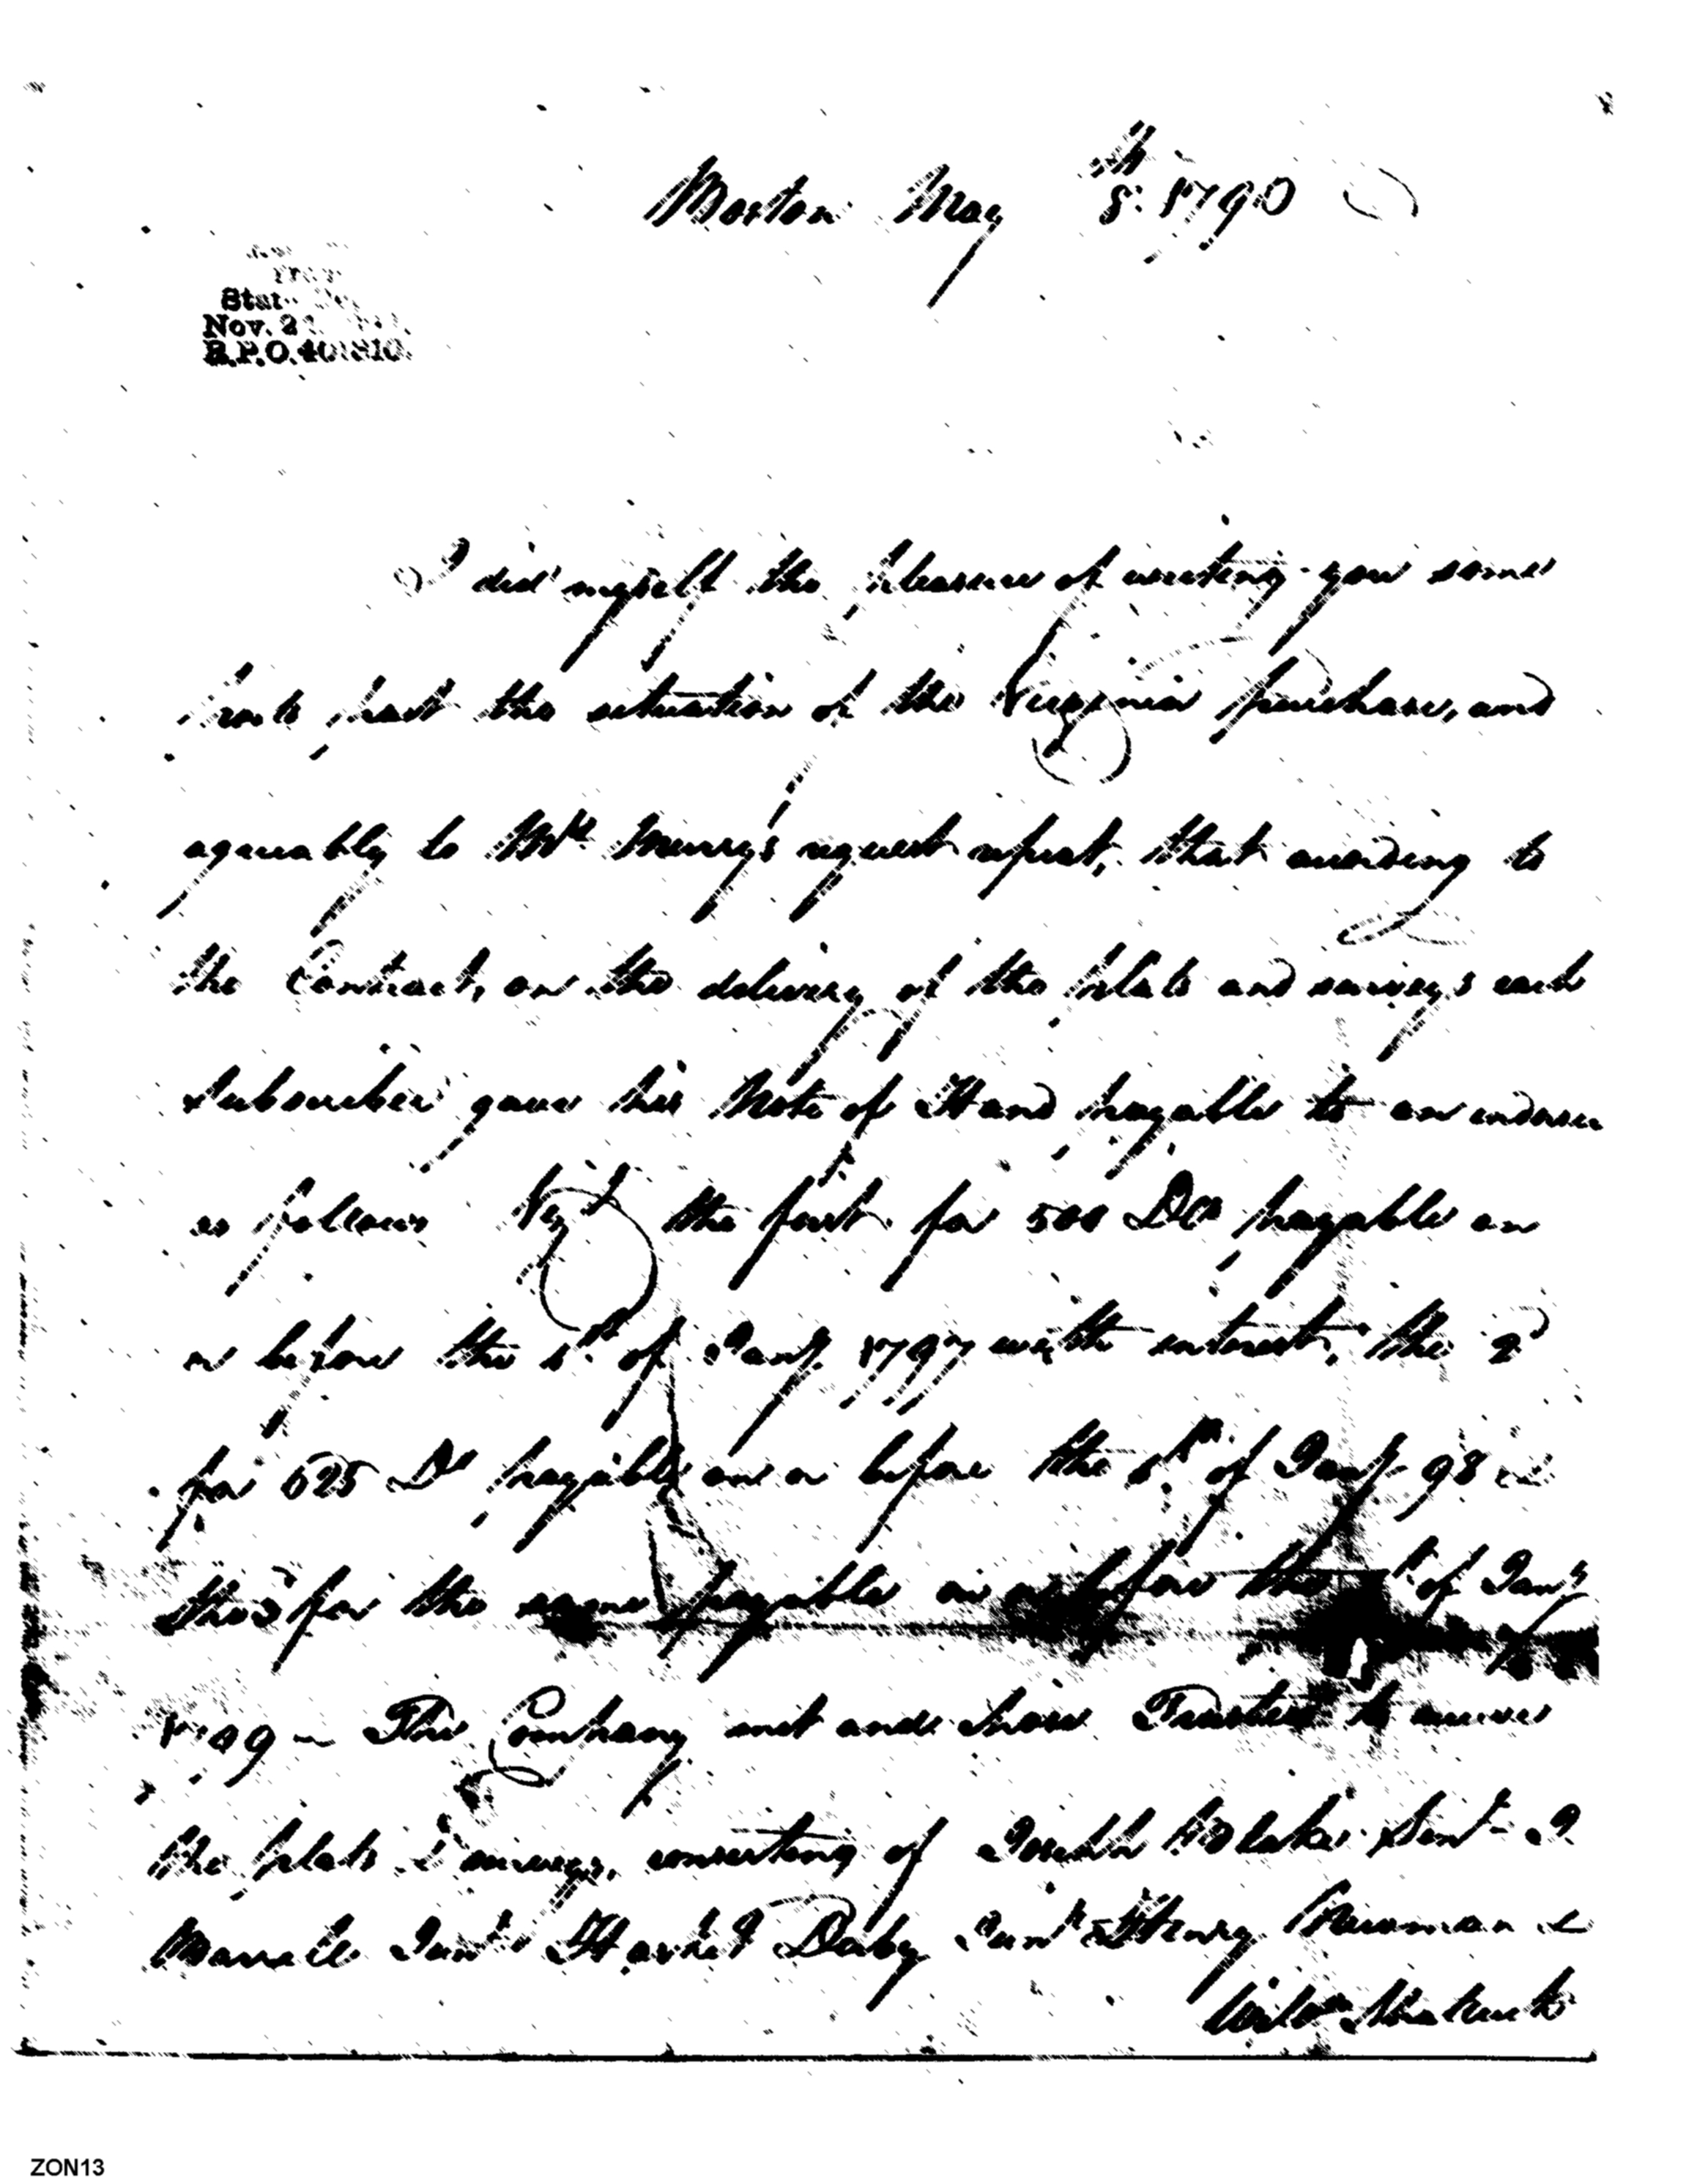 Boston May 8th. 1790
Nov. 2
R.P.O. 401810
I did myself the pleasure of writing you some
past the situation of the Virginia purchase, and
agreeably to Mr. Murry's request repeat, that according to
the Contract, on the delivery of the plats and surveys each
subscriber gave his Note of Hand payable to an indorser
as follows Vizt the first for 500 Drs payable on
or before the 1st. of Jany. 1797 with interest, the 2d
for 625 Ds payable on or before the 1st. of Jany 98 &
the 3d for the same payable on or before the 1st. of Jany
1799 – The Company met and chose Trustees to receive
the plats & surveys, consisting of Joseph Blake Senr. I
Junr Hasket Derby Junr Henry Newman &
Willm
ZON13